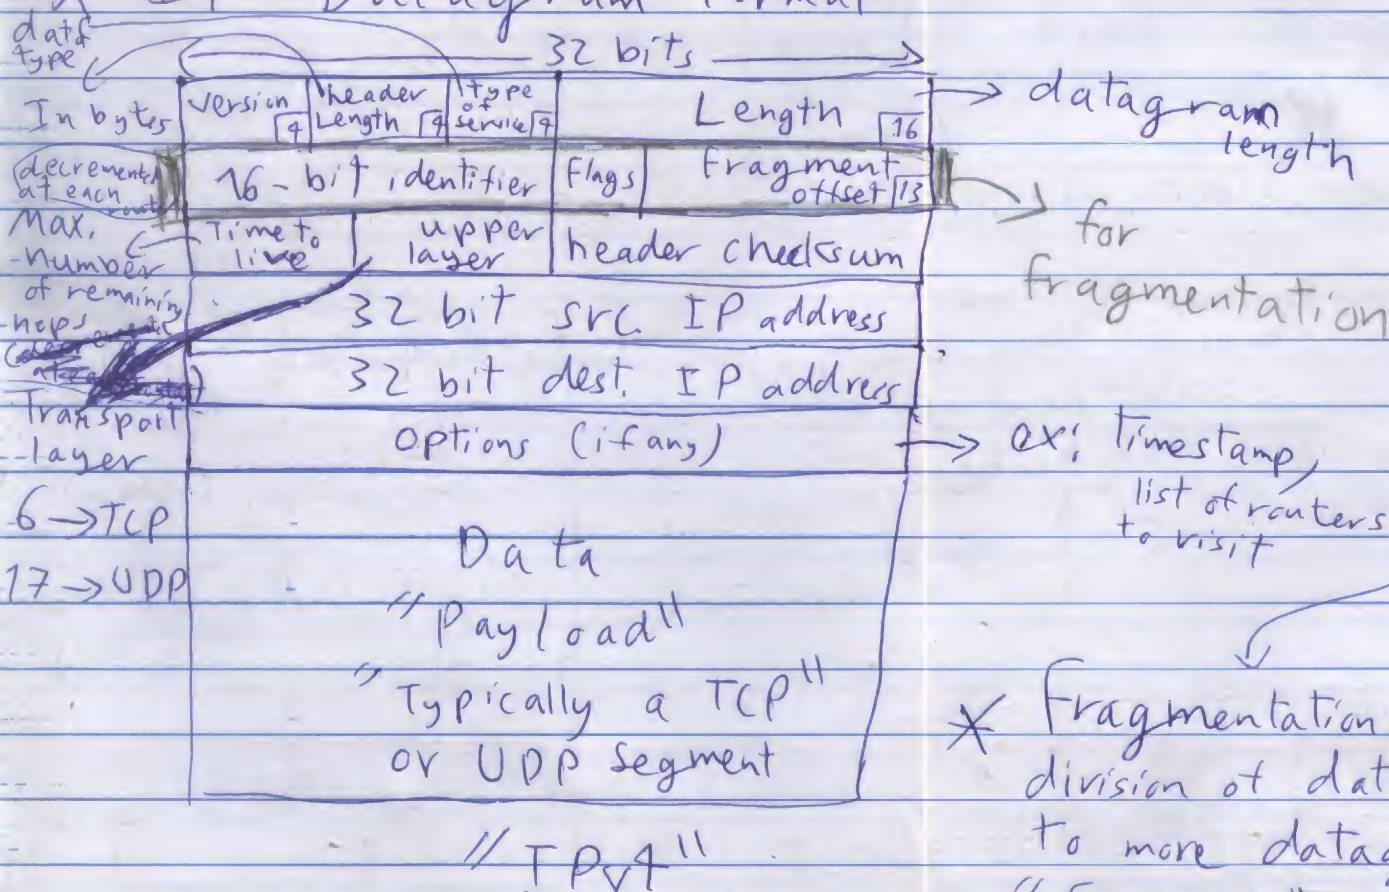 Datagram Format
data
type
32 bits
In bytes
version 4
header
Length 4
type
of
service 4
Length 16
datagram
length
decremented
at each
16-bit identifier
Flags
Fragment
offset 13
for
fragmentation
Max.
number
of remaining
hops
Time to
live
upper
layer
header checksum
32 bit src. IP address
32 bit dest. IP address
Transport
layer
Options (if any)
ex: Timestamp,
list of routers
to visit
6 → TCP
17 → UDP
Data
"Payload"
"Typically a TCP"
or UDP Segment
"IPv4"
* Fragmentation
division of dat
to more datag